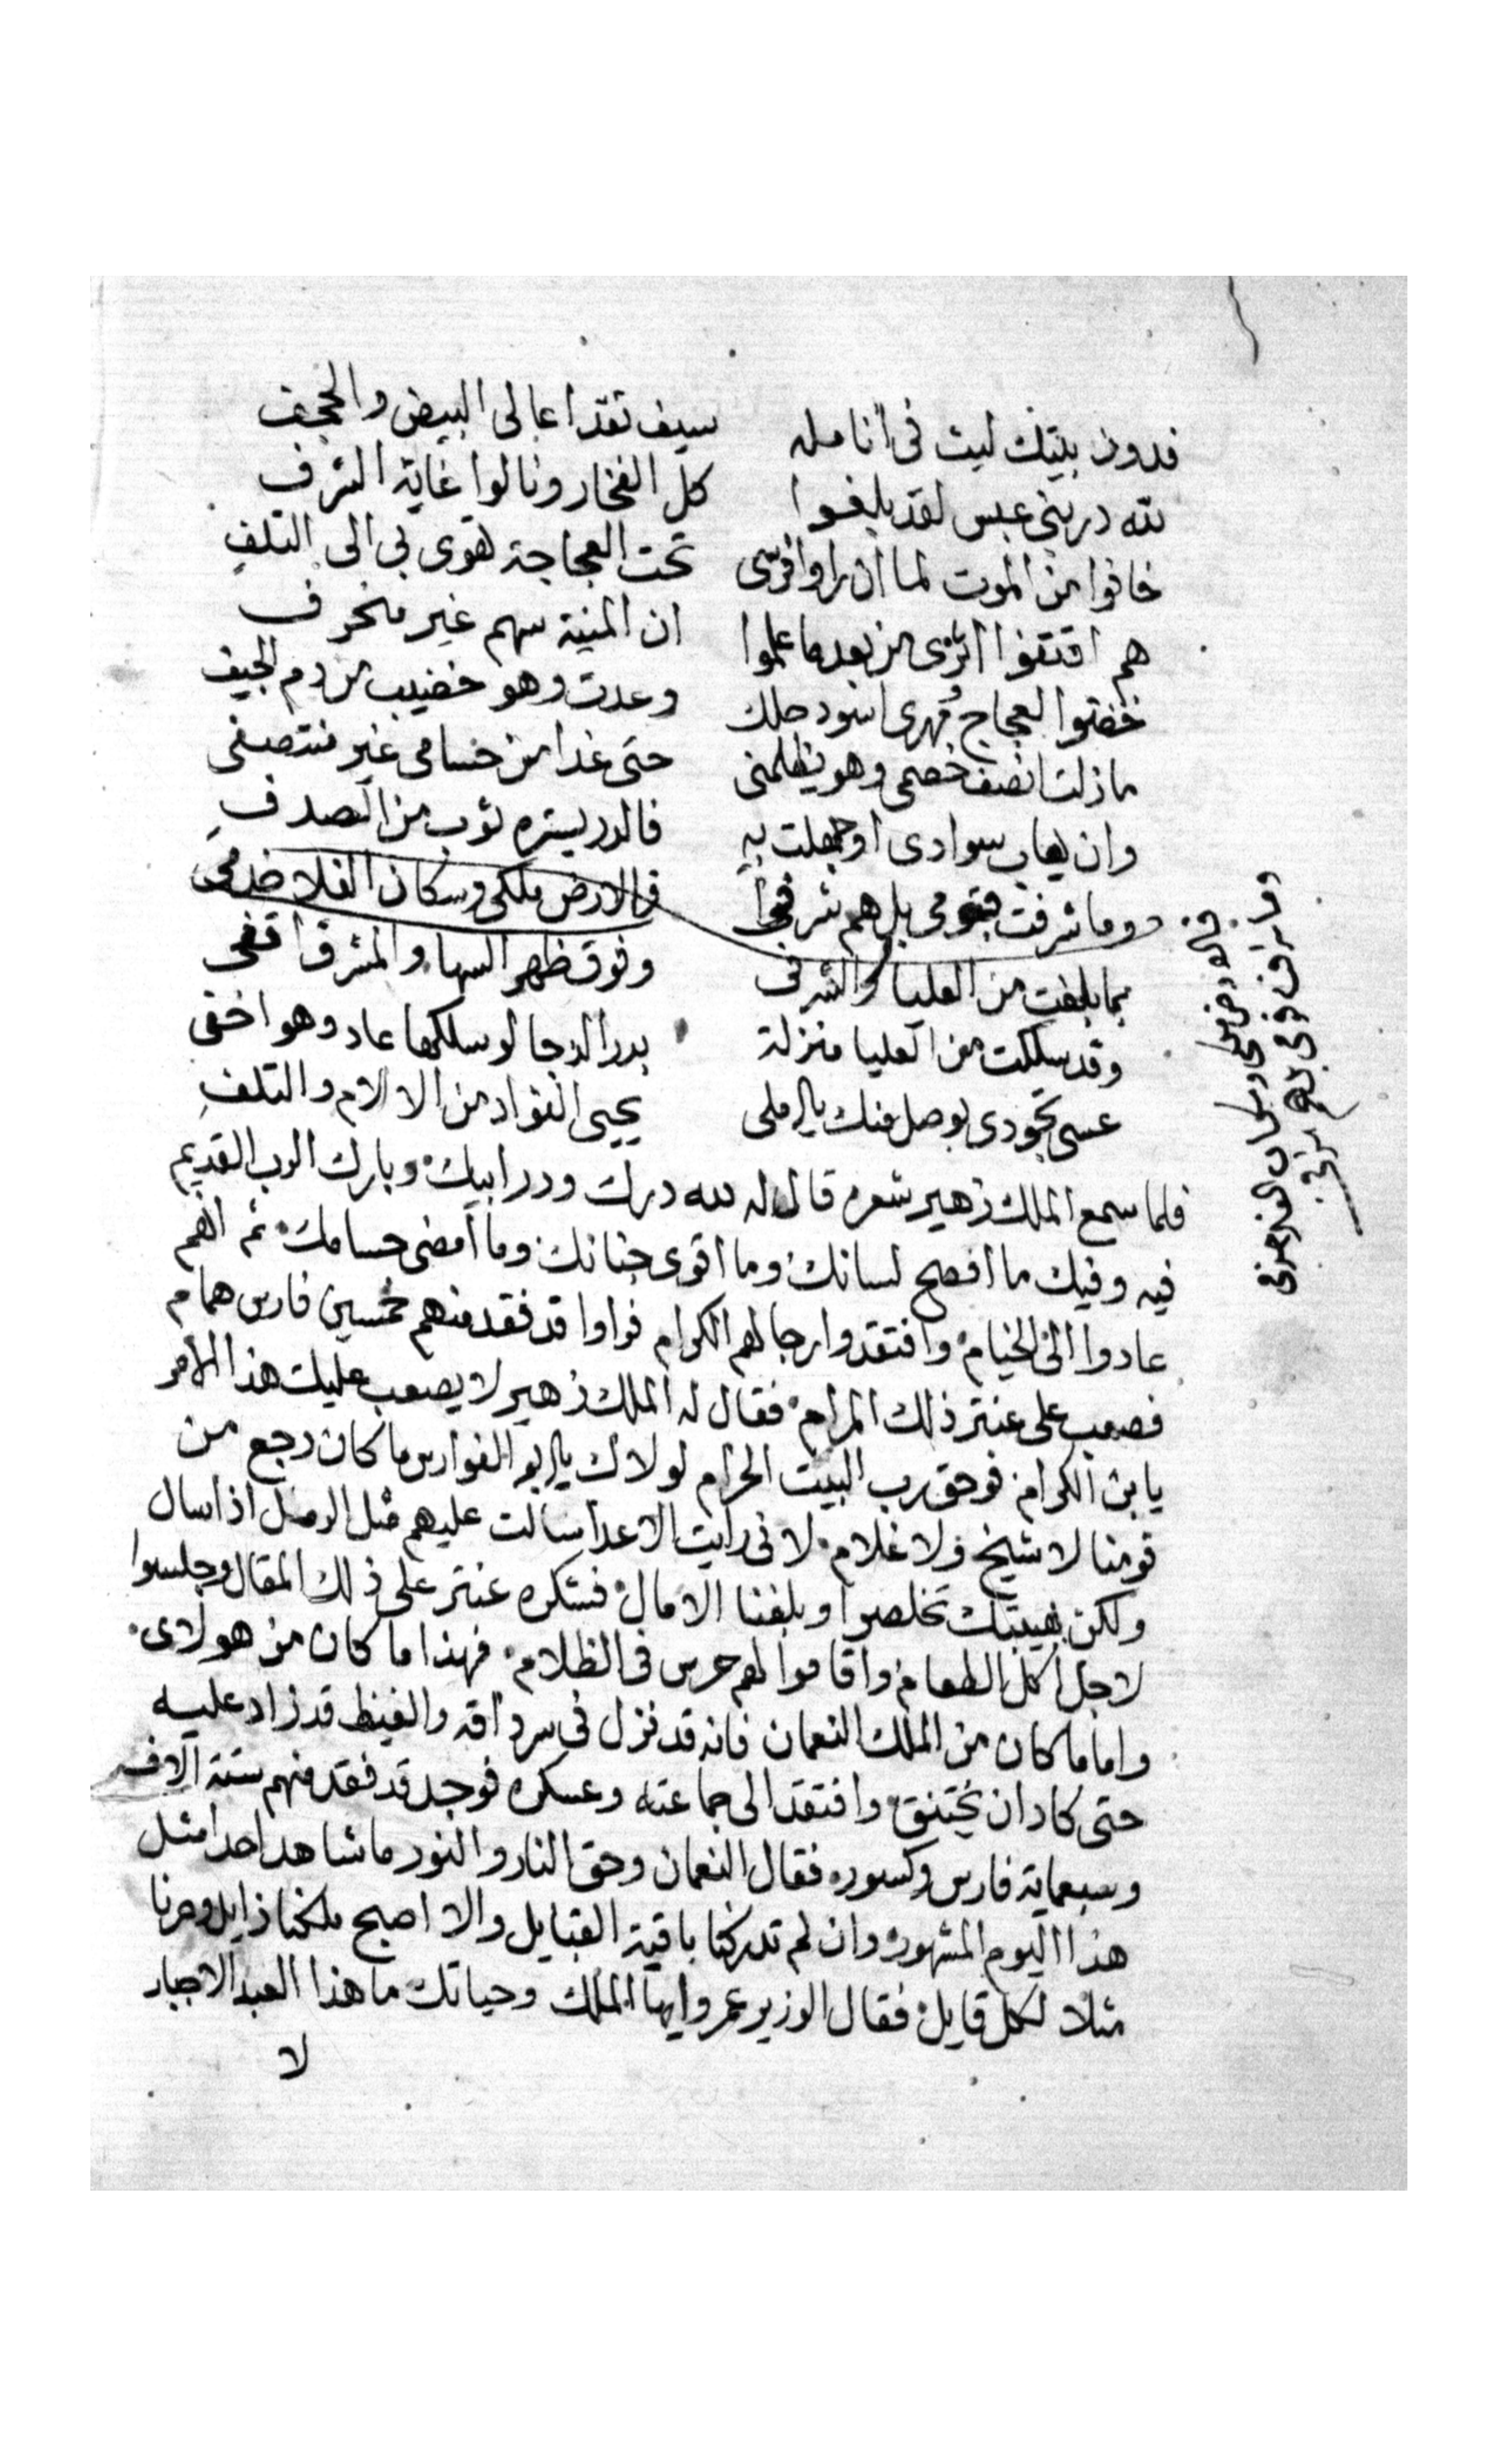 فدون بيتك ليث في انامله سيف تقدا عالى البيض والحجف
لله در بني عبس لقد بلغوا كل الفخار ونالوا غاية الشرف
خافوا من الموت لما ان راوا فرسى تحت العجاجة تهوى بي الى التلف
هم اقتفوا اثرى من بعد ما علموا ان المنية سهم غير منحرف
خضتوا العجاج ومهرى اسود حلك وعدت وهو خضيب من دم الجيف
ما زلت انصف خصمى وهو يظلمنى حتى غدا من حسامى غير منتصفى
وان يعاب سوادى او جهلت به فالدر يستره ثوب من الصدف
وما شرفت بقومى بل هم شرفوا فالارض ملكى وسكان الفلا خدمى
بما بلغت من العليا والشرفى وفوق ظهر السها والمشرق اقفى
وقد سلكت من العليا منزلة بدر الدجا لو سلكها عاد وهو اخفى
عسى تجودى بوصل منك يا املى يحيى الفواد من الالام والتلف
فلما سمع الملك زهير شعره قال له لله درك ودر ابيك وبارك الرب القديم
فيه وفيك ما افصح لسانك وما اقوى جنانك وما امضى حسامك ثم انهم
عادوا الى الخيام وافتقدوا رجالهم الكرام فراوا قد فقد منهم خمسين فارس همام
فصعب على عنتر ذلك المرام فقال له الملك زهير لا يصعب عليك هذا الامر
يا بن الكرام فوحق رب البيت الحرام لولاك يا ابو الفوارس ما كان رجع من
قومنا لا شيخ ولا غلام لانى رايت الاعدا سالت عليهم مثل الرمل اذا سال
ولكن بهيبتك تخلصوا وبلغنا الامال فشكره عنتر على ذلك المقال وجلسوا
لاجل اكل الطعام واقاموا لهم حرس فى الظلام فهذا ما كان من هولاى
واما ما كان من الملك النعمان فانه قد نزل فى سرداقه والغيظ قد زاد عليه
حتى كاد ان يختنق وافتقد الى جماعته وعسكره فوجد قد فقد منهم ستة الاف
وسبعماية فارس وكسوره فقال النعمان وحق النار والنور ما شاهد احدا مثل
هذا اليوم المشهور وان لم تدركنا باقية القبايل والا اصبح ملكنا زايل وصرنا
مثلا لكل قايل فقال الوزير عمرو ايها الملك وحياتك ما هذا العبد الا جبار
لا